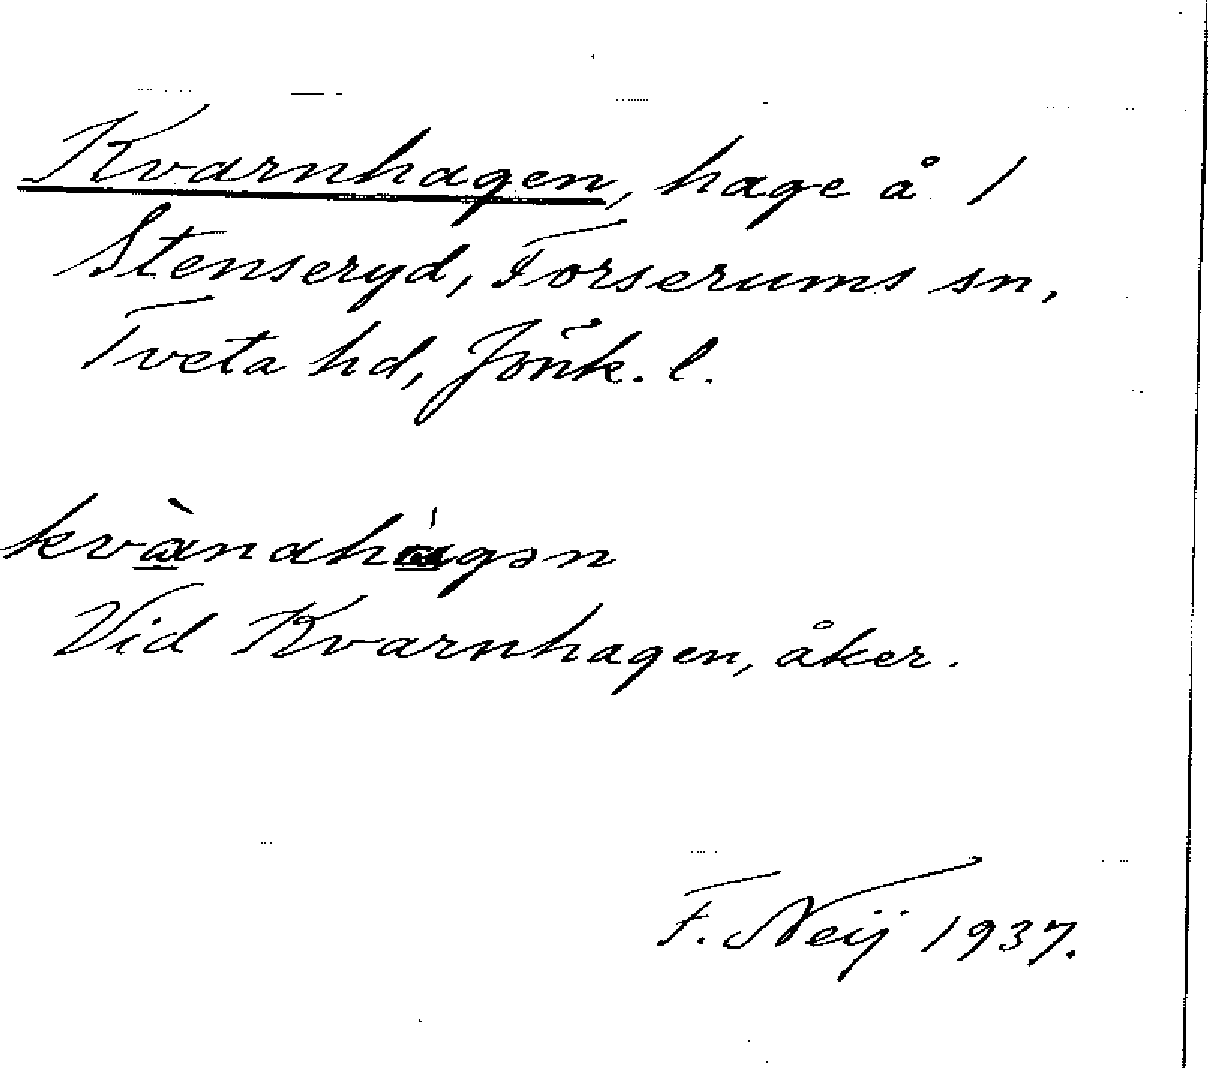 Kvarnhagen, hage å 1
Stenseryd, Forserums sn,
Tveta hd, Jönk. l.
kvànahágən
Vid Kvarnhagen, åker.
F. Neij 1937.